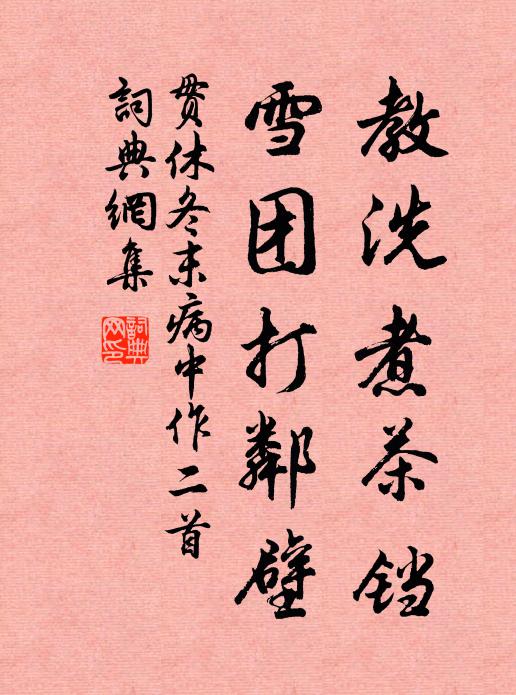 教洗煮茶铛
雪团打鄰壁
贯休冬末病中作二首
詞典網集
詞典网印